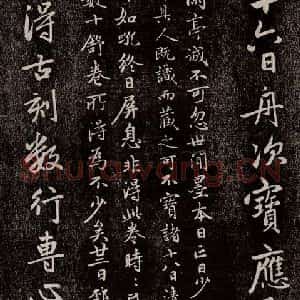 十六日舟次寶應
蘭亭誠不可忽世間墨本日亡日少
其人既識而藏之可不寶諸十八日清
如吼終日屏息非得此卷時
數十舒卷所得為不少矣廿二日邳
得古刻數行專心
Shufawang.CN